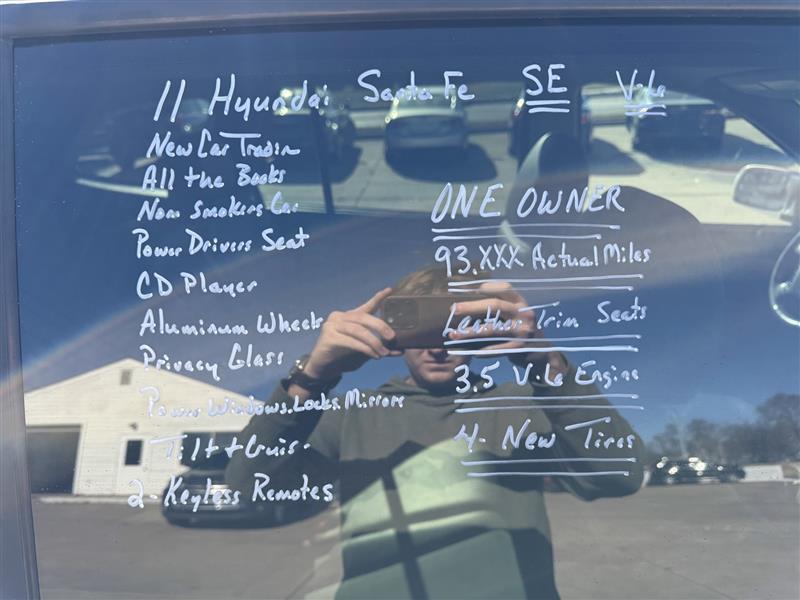 11 Hyundai Santa Fe SE V-6
New Car Tradin
All the Books
Non Smokers Car
Power Drivers Seat
CD Player
Aluminum Wheels
Privacy Glass
Power Windows. Locks. Mirrors
Tilt + Cruis-
2- Keyless Remotes
ONE OWNER
93.XXX Actual Miles
Leather Trim Seats
3.5 V-6 Engine
4- New Tires